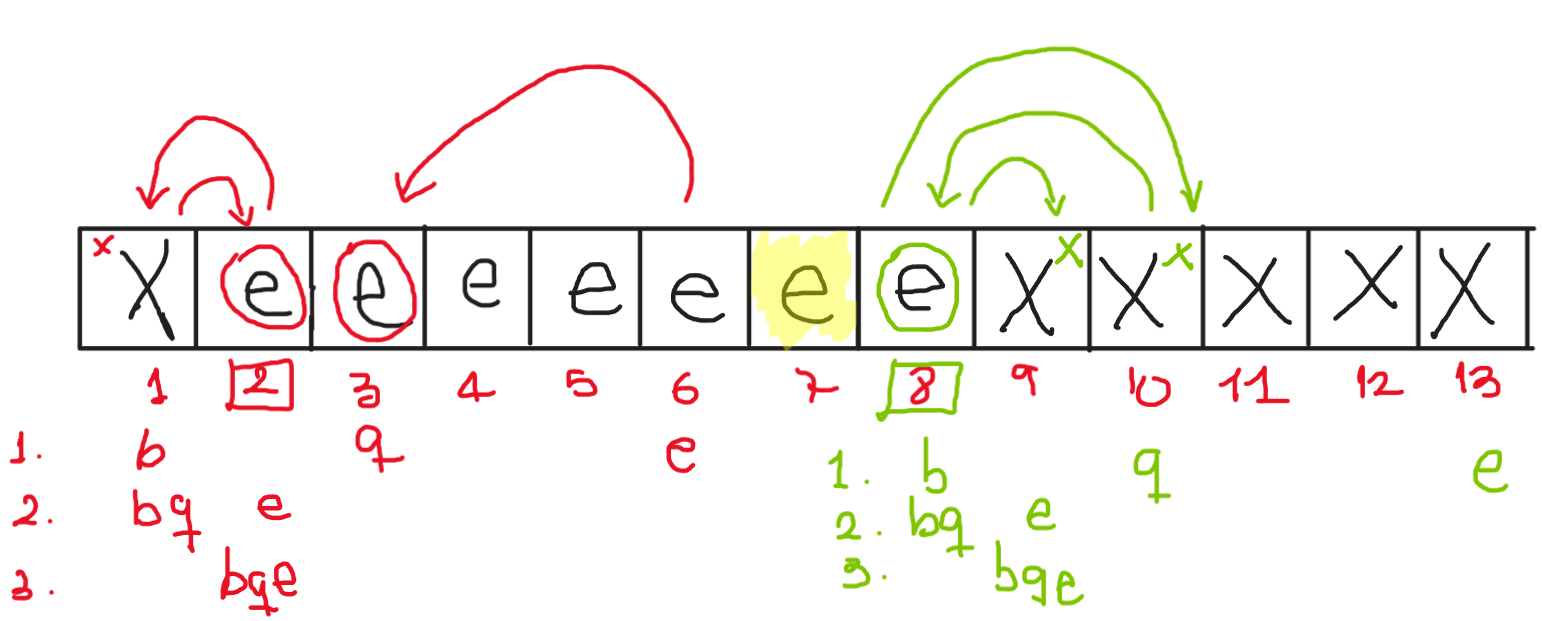 x X e e e e e e e X x X x X X X
1 2 3 4 5 6 7 8 9 10 11 12 13
1. b q e
2. bq e
3. bqe
1. b q e
2. bq e
3. bqe